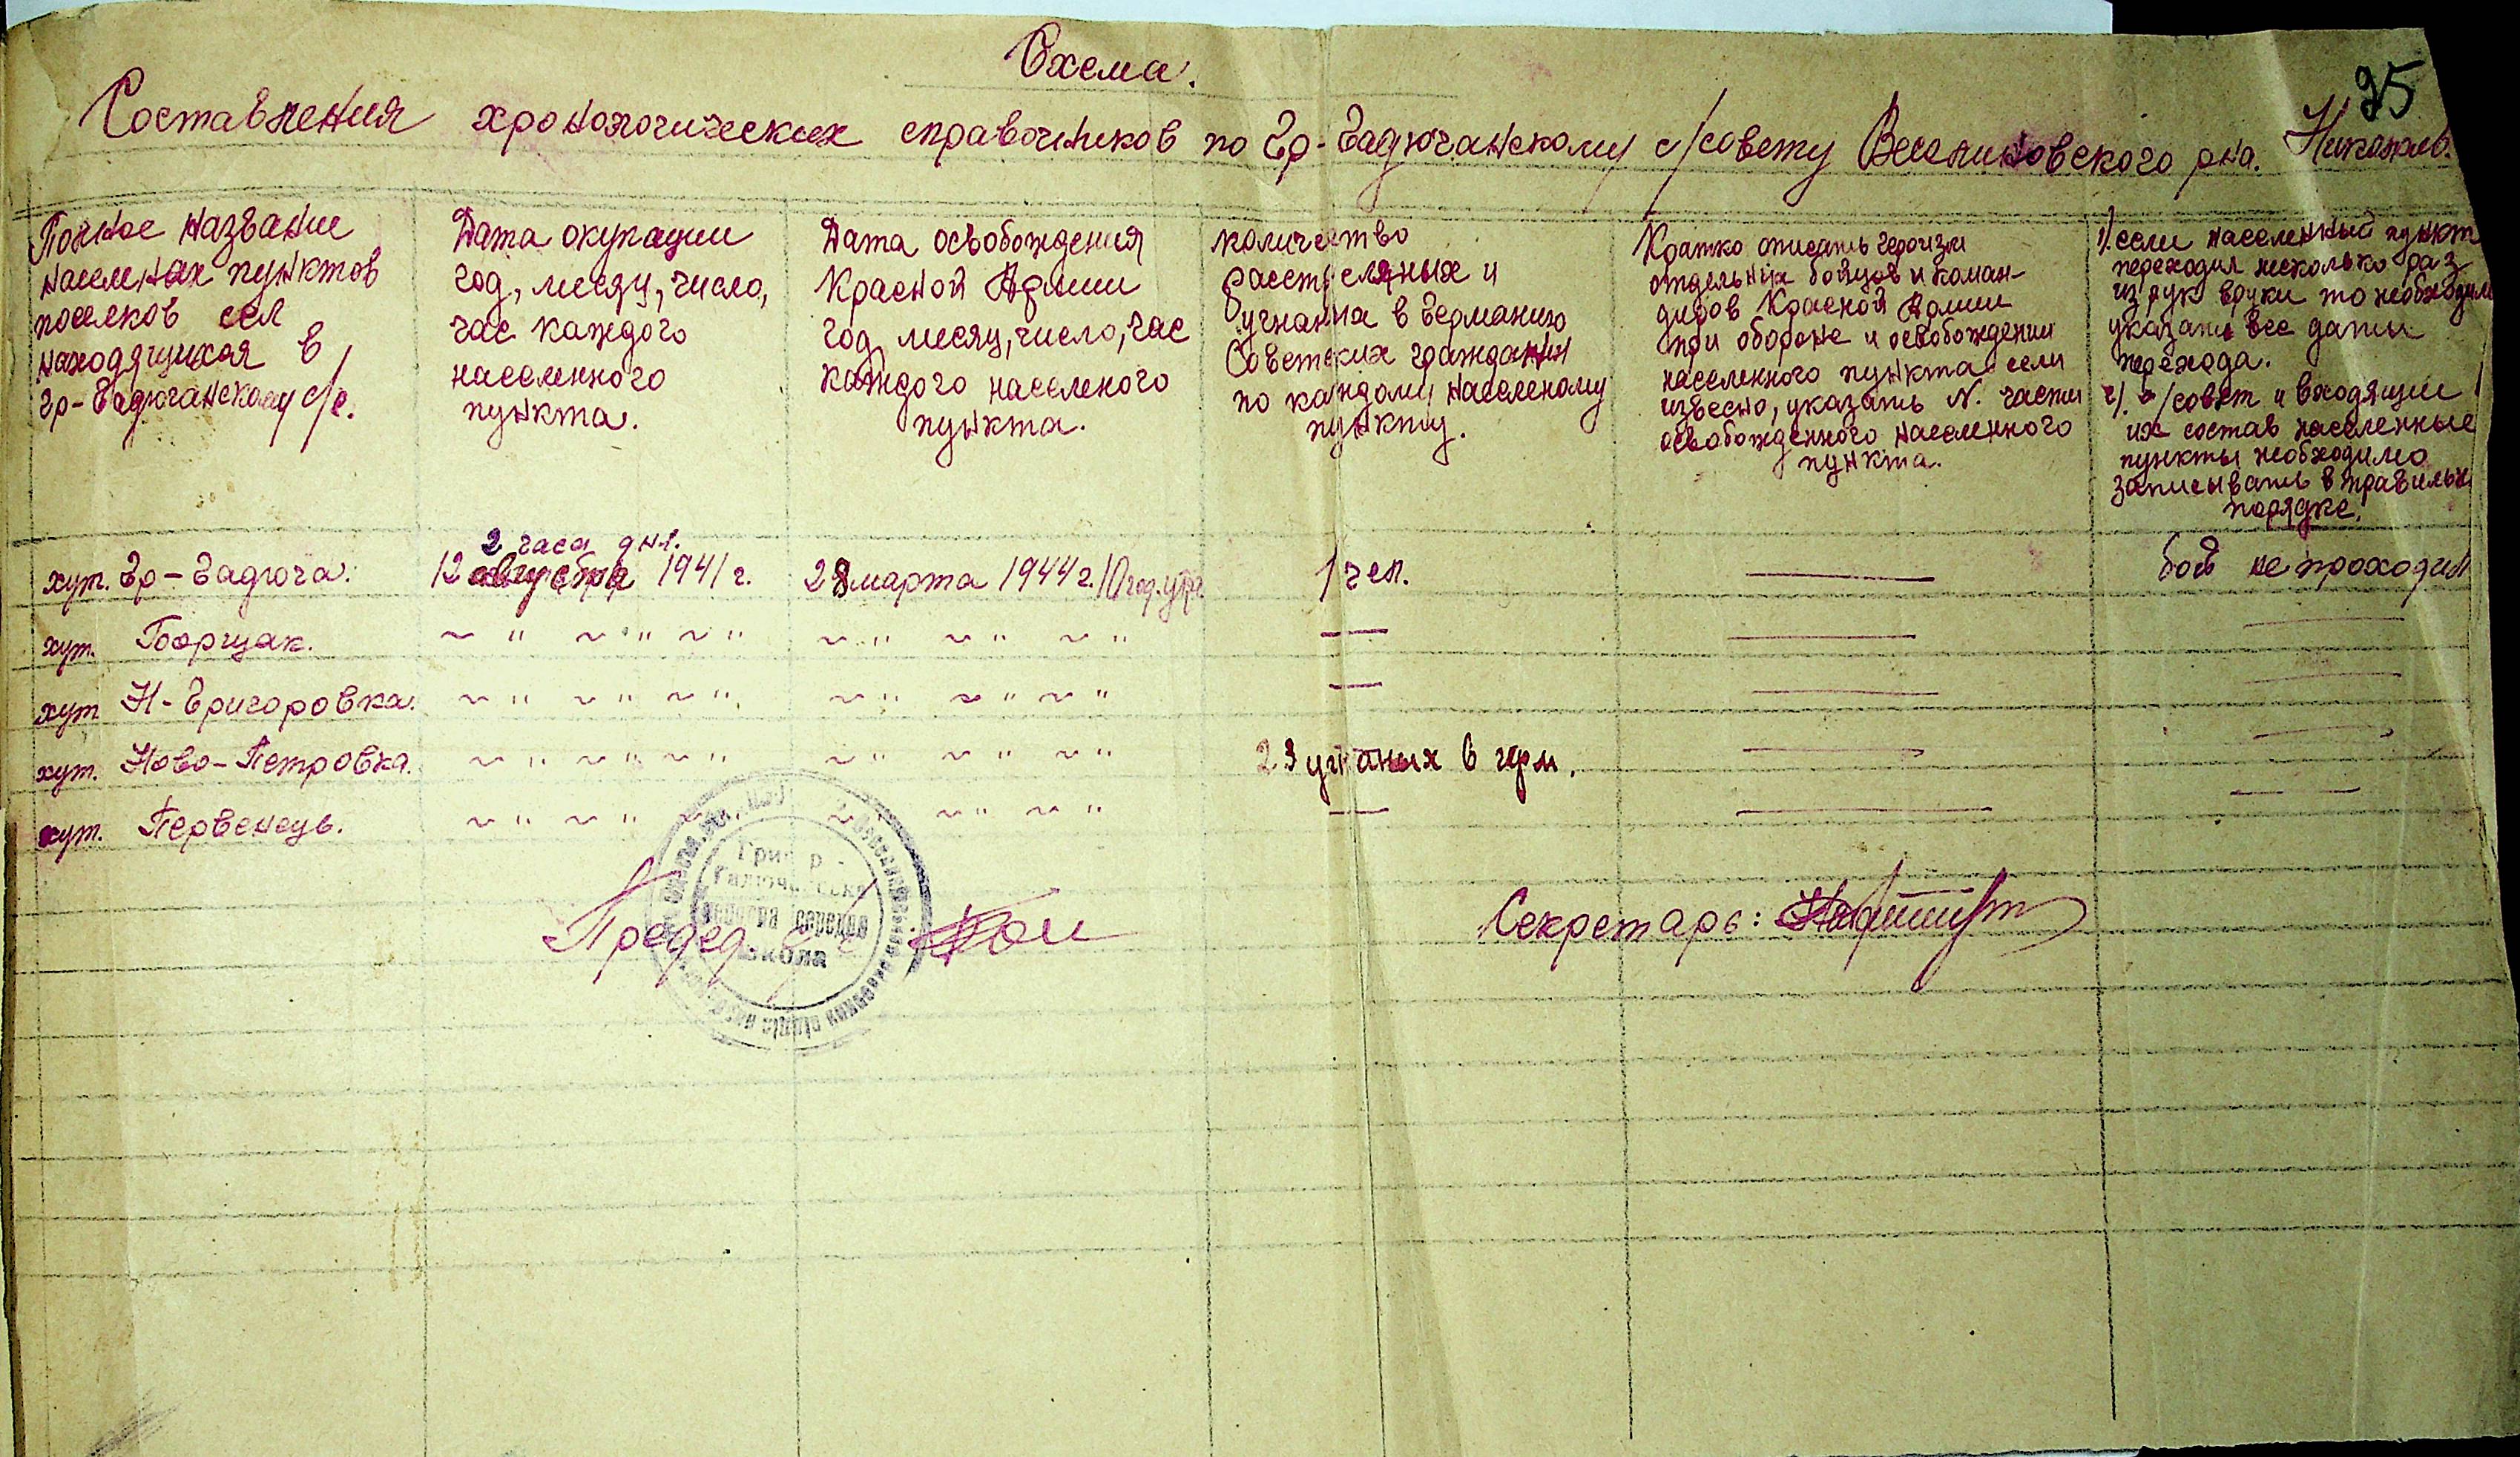 95
Схема.
Составления хронологических справочников по Гр-Гадючанскому с/совету Веселиновского рна. Николаев.
Полное название
населеных пунктов
поселков сел
находящихся в
Гр-Гадючанскому с/с.
Дата окупации
год, месяц, число,
час каждого
населенного
пункта.
Дата освобождения
Красной Армии
год, месяц, число, час
каждого населеного
пункта.
количество
расстреляных и
угнанна в Германию
Советских граждан
по каждому населеному
пункту.
Кратко описать героизм
отдельных бойцов и коман-
диров Красной Армии
при обороне и освобождении
населенного пункта если
извесно, указать N. части
освобожденного населенного
пункта.
1). если населенный пункт
переходил несколько раз
из рук вруки то необходим
указать все даты
перехода.
2). с/совет и входящии
их состав населенные
пункты необходимо
записывать в правильн
порядке.
хут. Гр-Гадюча. 2 часа дня. 12 августа 1941 г. 28 марта 1944 г. 10 год. утр. 1 чел. — бой не проходил
хут. Борщак. ~ " ~ " ~ " ~ " ~ " ~ " — — —
хут Н-Григоровка. ~ " ~ " ~ " ~ " ~ " ~ " — — —
хут. Ново-Петровка. ~ " ~ " ~ " ~ " ~ " ~ " 23 угнаных в герм. — —
хут. Первенець. ~ " ~ " ~ " ~ " ~ " ~ " — — — —
Председ. с/с
Секретарь:
школа